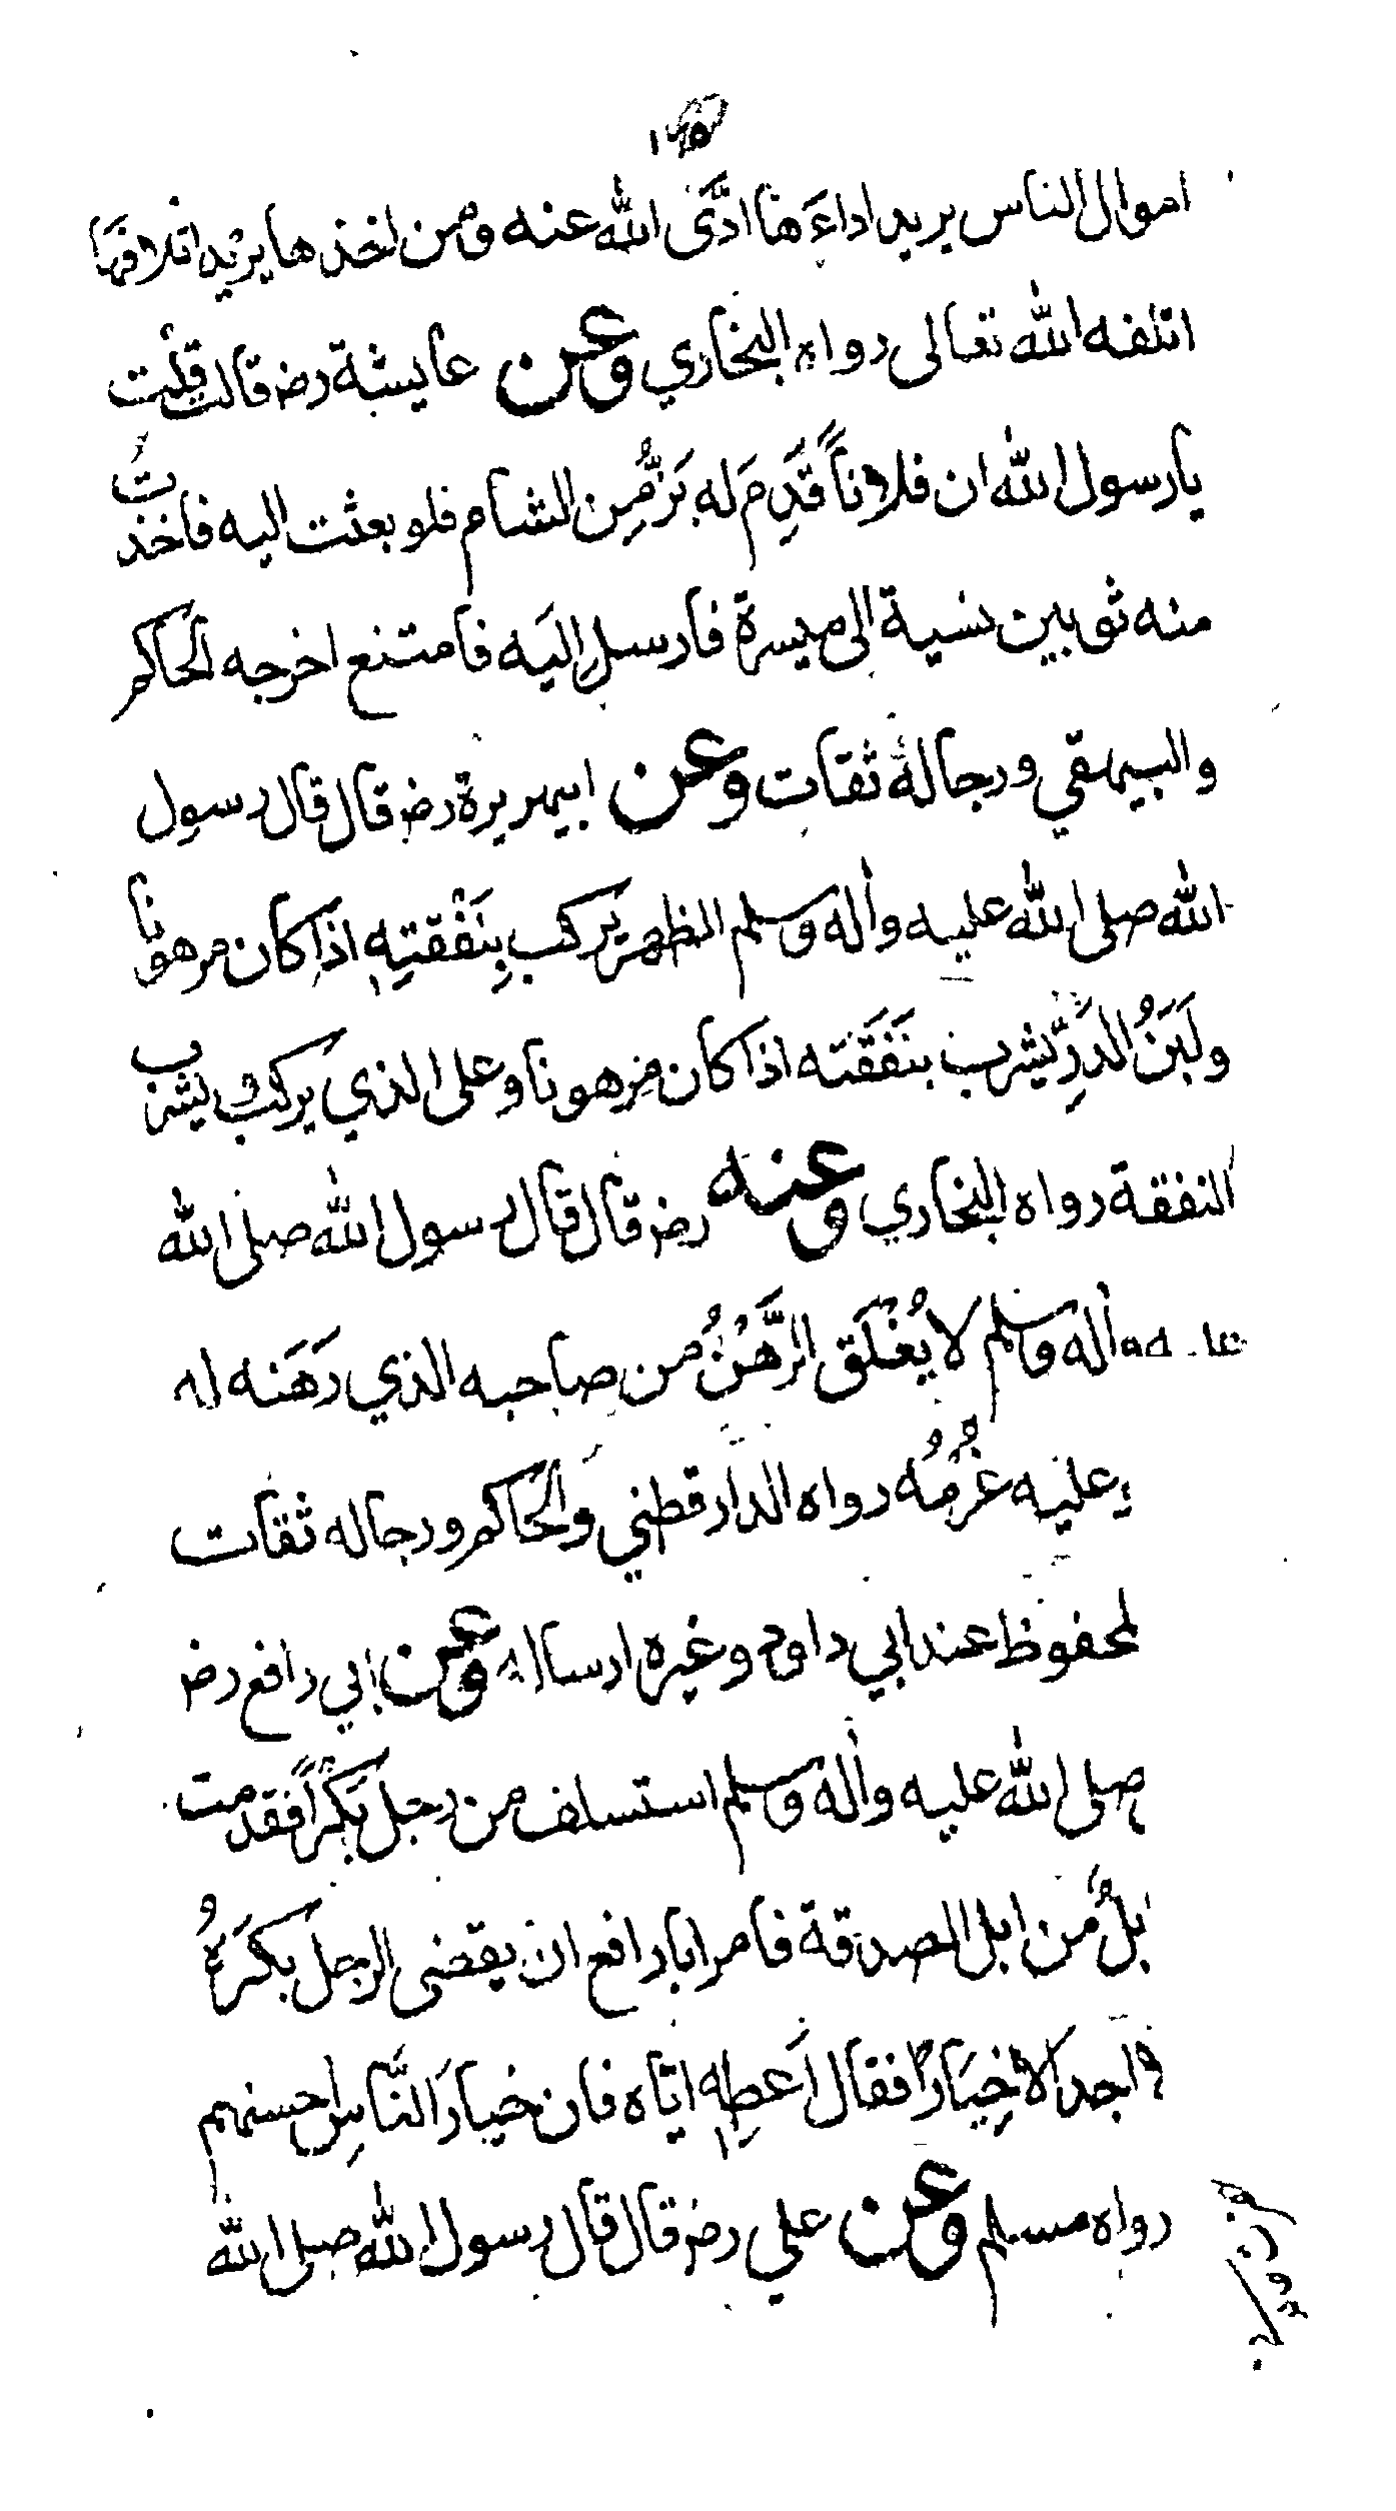 اموال الناس يريد اداءَها ادَّى الله عنه ومن اخذها يريد اتلافها
اتلفه الله تعالى رواه البخاري وعن عايشة رضـ قالت قلت
يا رسول الله ان فلاناً قَدِمَ له بَزٌّ مِن الشام فلو بعثت اليه فاخذتَ
منه ثوبين نسية الى ميسرة فارسل اليَه فامتنع اخرجه الحاكم
والبيهقي ورجالهُ ثقات وعن ابيهريرة رضـ قال قال رسول
الله صلى الله عليه واله وسلم الظهر يَركب بِنَفْقتِهِ اذا كان مرهونا
ولَبَنُ الدَرِّ يشرب بنَفَقَته اذا كان مرهونا وعلى الذي يركب ويشرب
النفقة رواه البخاري وعنه رضـ قال قال رسول الله صلى الله
واله وسلم لا يُغْلَق الرَّهْنُ من صاحبه الذي رَهَنه له
عليه غُرْمُه رواه الدارقطني والحاكم ورجاله ثقات
لمحفوظ عند ابي داود وغيره ارساله وعن ابي رافع رضـ
صلى الله عليه واله وسلم استسلف من رجل بَكْراً فقدمت
ابلٌ من ابل الصدقة فامر ابا رافع ان يقضى الرجل بكرَهُ
اجد الا خِيَاراً فقال اَعطِهِ اياه فان خيارَ النَّاسِ احسنهم
رواه مسلم وعن علي رضـ قال قال رسول الله صلى الله